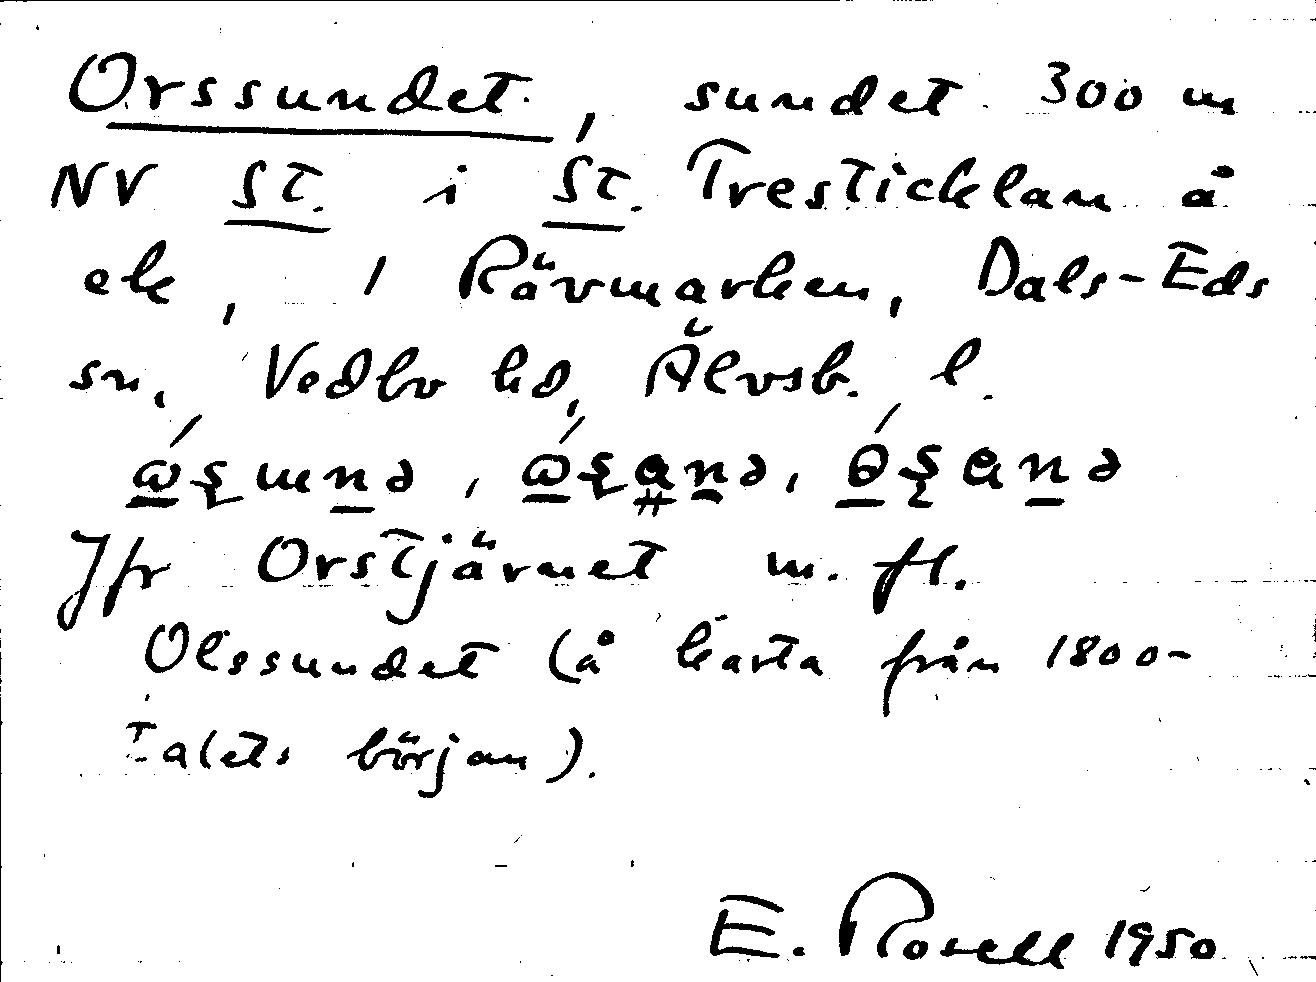 Orssundet, sundet 300 m
NV St. i St. Tresticklan å
ek, 1 Rävmarken, Dals-Eds
sn, Vedbo hd, Älvsb. l.
Jfr Orstjärnet m. fl.
Olssundet (å karta från 1800-
talets början).
E. Rosell 1950